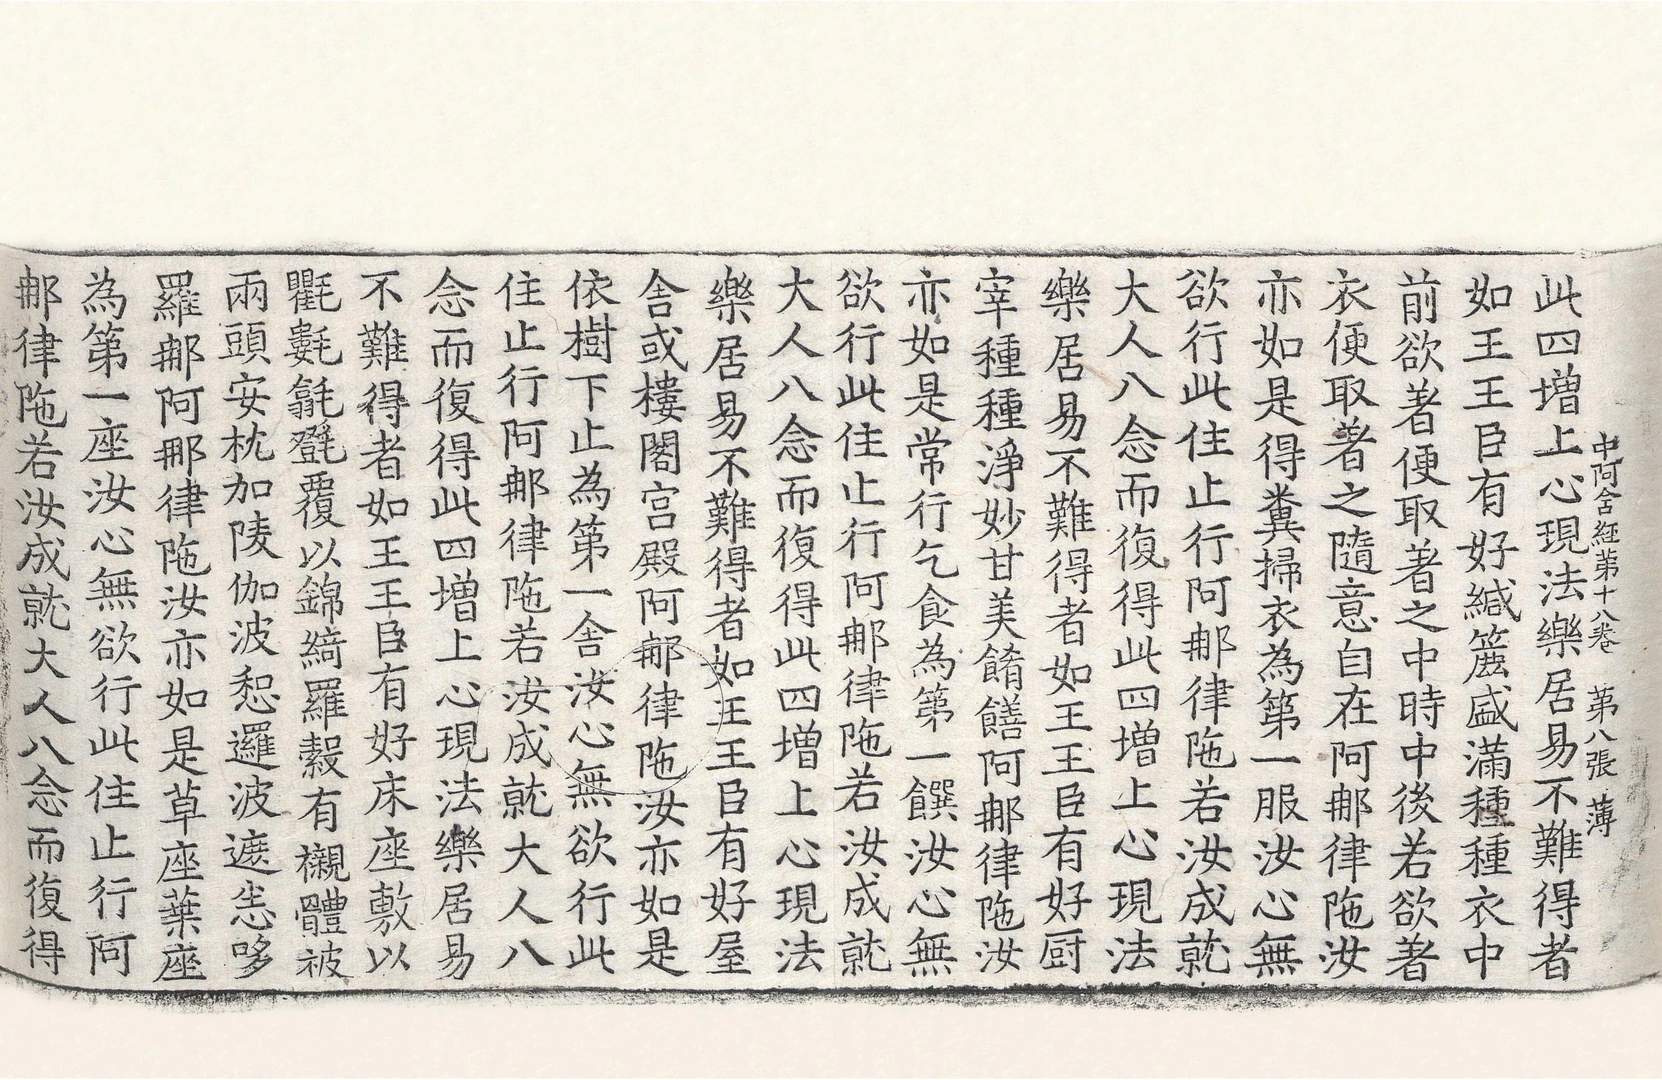 中阿含經第十八卷 第八張 薄
此四增上心現法樂居易不難得者
如王王臣有好緘簏盛滿種種衣中
前欲著便取著之中時中後若欲著
衣便取著之隨意自在阿那律陁汝
亦如是得糞掃衣為第一服汝心無
欲行此住止行阿那律陁若汝成就
大人八念而復得此四增上心現法
樂居易不難得者如王王臣有好厨
宰種種淨妙甘美餚饍阿那律陁汝
亦如是常行乞食為第一饌汝心無
欲行此住止行阿那律陁若汝成就
大人八念而復得此四增上心現法
樂居易不難得者如王王臣有好屋
舍或樓閣宮殿阿那律陁汝亦如是
依樹下止為第一舍汝心無欲行此
住止行阿那律陁若汝成就大人八
念而復得此四增上心現法樂居易
不難得者如王王臣有好床座敷以
氍氀㲩㲪覆以錦綺羅縠有襯體被
兩頭安枕加陵伽波惒邏波遮悉哆
羅那阿那律陁汝亦如是草座葉座
為第一座汝心無欲行此住止行阿
那律陁若汝成就大人八念而復得